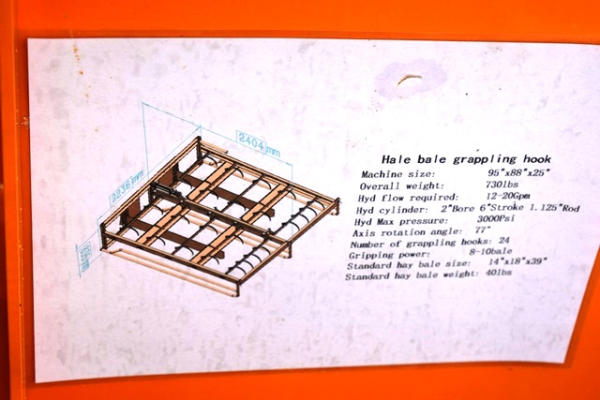 2404 mm
2236 mm
Hale bale grappling hook
Machine size: 95"x88"x25"
Overall weight: 730lbs
Hyd flow required: 12-20Gpm
Hyd cylinder: 2"Bore 6"Stroke 1.125"Rod
Hyd Max pressure: 3000Psi
Axis rotation angle: 77°
Number of grappling hooks: 24
Gripping power: 8-10bale
Standard hay bale size: 14"x18"x39"
Standard hay bale weight: 40lbs